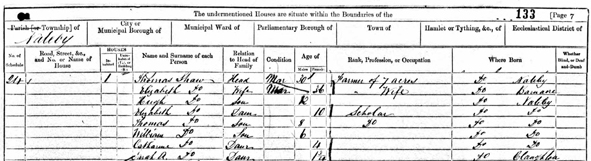 The undermentioned Houses are situate within the Boundaries of the
133
Page 7
Parish [or Township] of
City or Municipal Borough of
Municipal Ward of
Parliamentary Borough of
Town of
Hamlet or Tything, &c., of
Ecclesiastical District of
Nateby
No. of Schedule
Road, Street, &c., and No. or Name of House
HOUSES
Name and Surname of each Person
Relation to Head of Family
Condition
Age of
Rank, Profession, or Occupation
Where Born
Whether Blind, or Deaf-and-Dumb
1 Thomas Shaw Head Mar Farmer of 7 acres Do Nateby
Elizabeth Do Wife Mar 36 " Wife Do
Hugh Do Son 12 Do Nateby
Elizabeth Do Daur 10 Scholar Do Do
Thomas Do Son 8 Do Do Do
William Do Son 6 Do Do
Catharine Do Daur 4 Do Do
A. Do Daur Do Claughton